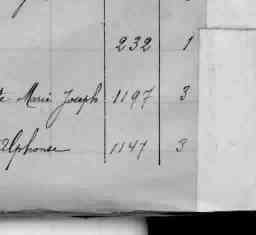 232 1
te Marie Joseph 1197 3
Alphonse 1147 3